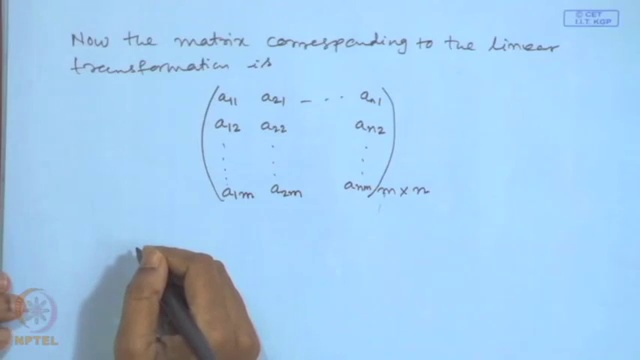 © CET
I.I.T. KGP
Now the matrix corresponding to the linear
transformation is
a11 a21 - ... an1
a12 a22 an2
⋮ ⋮ ⋮
a1m a2m anm m × n
NPTEL